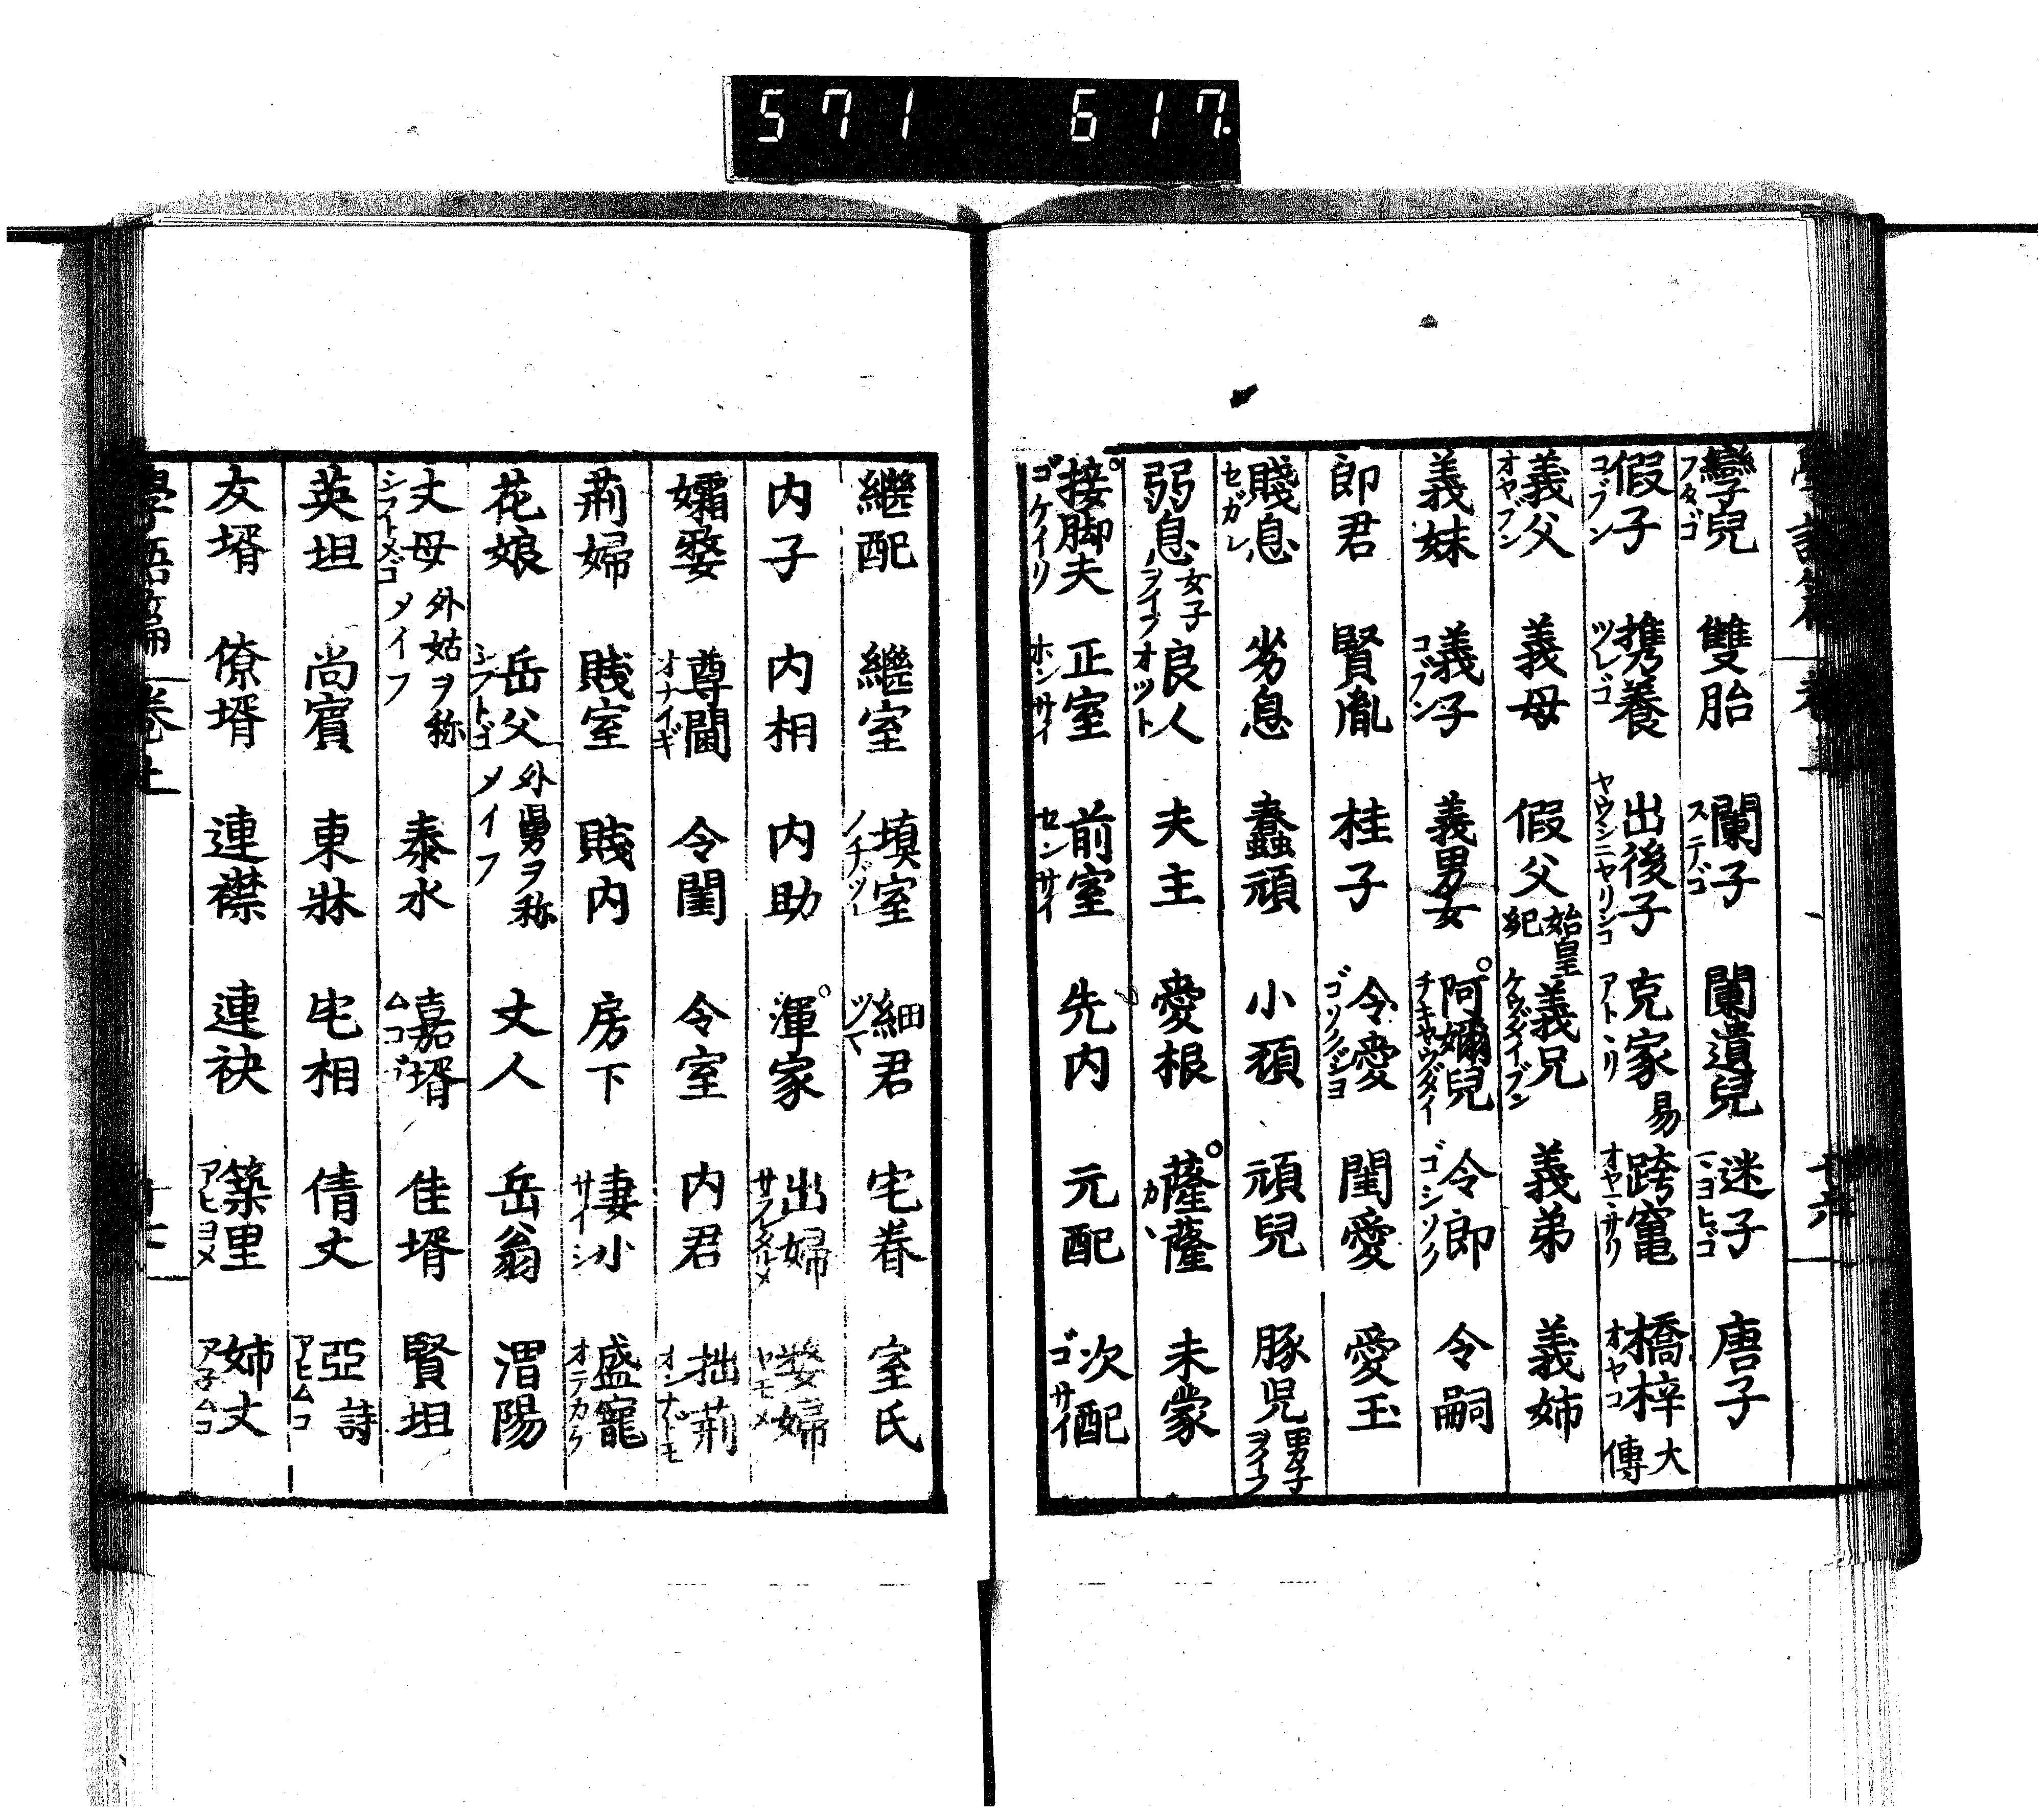 571 617
孿兒フタゴ 雙胎 闌子ステゴ 闌遺兒 迷子マヨヒゴ 唐子
假子コブン 携養ツレゴ 出後子ヤウシニヤリシコ 克家アトヽリ易 跨竃オヤニサリ 橋梓オヤコ大傳
義父オヤブン 義母 假父始皇紀 義兄ケウダイブン 義弟 義姉
義妹 義子コブン 義男女 阿嬭兒チキヤウダイ 令郎ゴシソク 令嗣
郎君 賢胤 桂子 令愛ゴソクジヨ 閨愛 愛玉
賤息セガレ 劣息 蠢頑 小頑 頑兒 豚児男子ヲイフ
弱息女子ヲイフ 良人オツト 夫主 愛根 薩薩カヽ 未蒙
接脚夫ゴケイリ 正室ホンサイ 前室センサイ 先内 元配 次配ゴサイ
繼配 繼室 填室ノチゾヒ 細君ツマ 宅眷 室氏
内子 内相 内助 渾家 出婦サラレタルメ 嫠婦ヤモメ
孀嫠 尊閫オナイギ 令閨 令室 内君 拙荊オンナドモ
荊婦 賤室 賤内 房下 妻小サイシ 盛寵オテカケ
花娘 岳父シフトゴ外舅ヲ称メイフ 丈人 岳翁 渭陽
丈母シフトメゴ外姑ヲ称メイフ 泰水 嘉壻ムコ 佳壻 賢坦
英坦 尚賓 東牀 宅相 倩丈 亞アヒムコ詩
友壻 僚壻 連襟 連袂 築里アヒヨメ 姉丈アネムコ
學語編 卷上